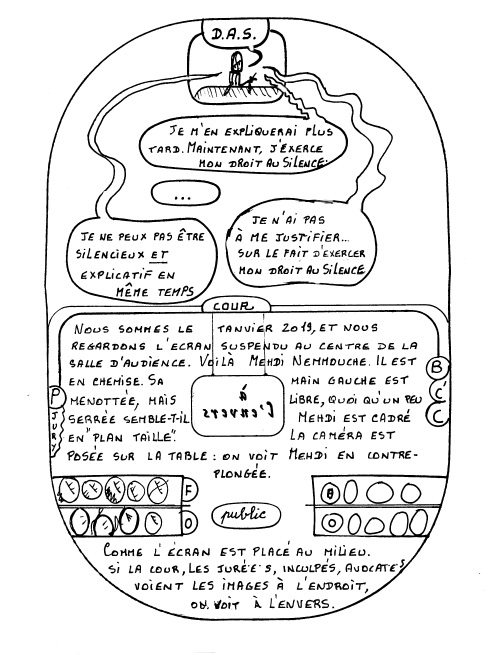 D.A.S.
JE M'EN EXPLIQUERAI PLUS
TARD. MAINTENANT, J'EXERCE
MON DROIT AU SILENCE.
...
JE NE PEUX PAS ÊTRE
SILENCIEUX ET
EXPLICATIF EN
MÊME TEMPS
JE N'AI PAS
À ME JUSTIFIER...
SUR LE FAIT D'EXERCER
MON DROIT AU SILENCE
COUR
NOUS SOMMES LE JANVIER 2019, ET NOUS
REGARDONS L'ÉCRAN SUSPENDU AU CENTRE DE LA
SALLE D'AUDIENCE. VOILÀ MEHDI NEMMOUCHE. IL EST
EN CHEMISE. SA MAIN GAUCHE EST
MENOTTÉE, MAIS LIBRE, QUOI QU'UN PEU
SERRÉE SEMBLE-T-IL MEHDI EST CADRÉ
EN "PLAN TAILLE". LA CAMÉRA EST
POSÉE SUR LA TABLE : ON VOIT MEHDI EN CONTRE-
PLONGÉE.
À
L'ENVERS
P
JURY
B
C'
C
F
O
public
COMME L'ÉCRAN EST PLACÉ AU MILIEU.
SI LA COUR, LES JURÉ·E·S, INCULPÉS, AVOCATES
VOIENT LES IMAGES À L'ENDROIT,
ON VOIT À L'ENVERS.